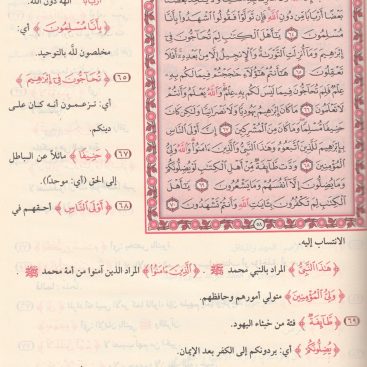 بَعْضًا أَرْبَابًا مِّن دُونِ اللَّهِ فَإِن تَوَلَّوْا فَقُولُوا اشْهَدُوا بِأَنَّا
مُسْلِمُونَ ٦٤ يَا أَهْلَ الْكِتَابِ لِمَ تُحَاجُّونَ فِي
إِبْرَاهِيمَ وَمَا أُنزِلَتِ التَّوْرَاةُ وَالْإِنجِيلُ إِلَّا مِن بَعْدِهِ أَفَلَا
تَعْقِلُونَ ٦٥ هَا أَنتُمْ هَٰؤُلَاءِ حَاجَجْتُمْ فِيمَا لَكُم بِهِ
عِلْمٌ فَلِمَ تُحَاجُّونَ فِيمَا لَيْسَ لَكُم بِهِ عِلْمٌ وَاللَّهُ يَعْلَمُ وَأَنتُمْ
لَا تَعْلَمُونَ ٦٦ مَا كَانَ إِبْرَاهِيمُ يَهُودِيًّا وَلَا نَصْرَانِيًّا وَلَٰكِن كَانَ
حَنِيفًا مُّسْلِمًا وَمَا كَانَ مِنَ الْمُشْرِكِينَ ٦٧ إِنَّ أَوْلَى النَّاسِ
بِإِبْرَاهِيمَ لَلَّذِينَ اتَّبَعُوهُ وَهَٰذَا النَّبِيُّ وَالَّذِينَ آمَنُوا وَاللَّهُ وَلِيُّ
الْمُؤْمِنِينَ ٦٨ وَدَّت طَّائِفَةٌ مِّنْ أَهْلِ الْكِتَابِ لَوْ يُضِلُّونَكُمْ
وَمَا يُضِلُّونَ إِلَّا أَنفُسَهُمْ وَمَا يَشْعُرُونَ ٦٩ يَا أَهْلَ
الْكِتَابِ لِمَ تَكْفُرُونَ بِآيَاتِ اللَّهِ وَأَنتُمْ تَشْهَدُونَ ٧٠
٥٨
آلهة دون الله.
﴿بِأَنَّا مُسْلِمُونَ﴾ أي:
مخلصون لله بالتوحيد.
٦٥ ﴿تُحَاجُّونَ فِي إِبْرَاهِيمَ﴾
أي: تزعمون أنه كان على
دينكم.
٦٧ ﴿حَنِيفًا﴾ مائلاً عن الباطل
إلى الحق (أي: موحداً).
٦٨ ﴿أَوْلَى النَّاسِ﴾ أحقهم في
الانتساب إليه.
﴿هَٰذَا النَّبِيُّ﴾ المراد بالنبي محمد ﷺ. ﴿الَّذِينَ آمَنُوا﴾ المراد الذين آمنوا من أمة محمد ﷺ.
﴿وَلِيُّ الْمُؤْمِنِينَ﴾ متولي أمورهم وحافظهم.
٦٩ ﴿طَائِفَةٌ﴾ فئة من خبثاء اليهود.
﴿يُضِلُّونَكُمْ﴾ أي: يردونكم إلى الكفر بعد الإيمان.